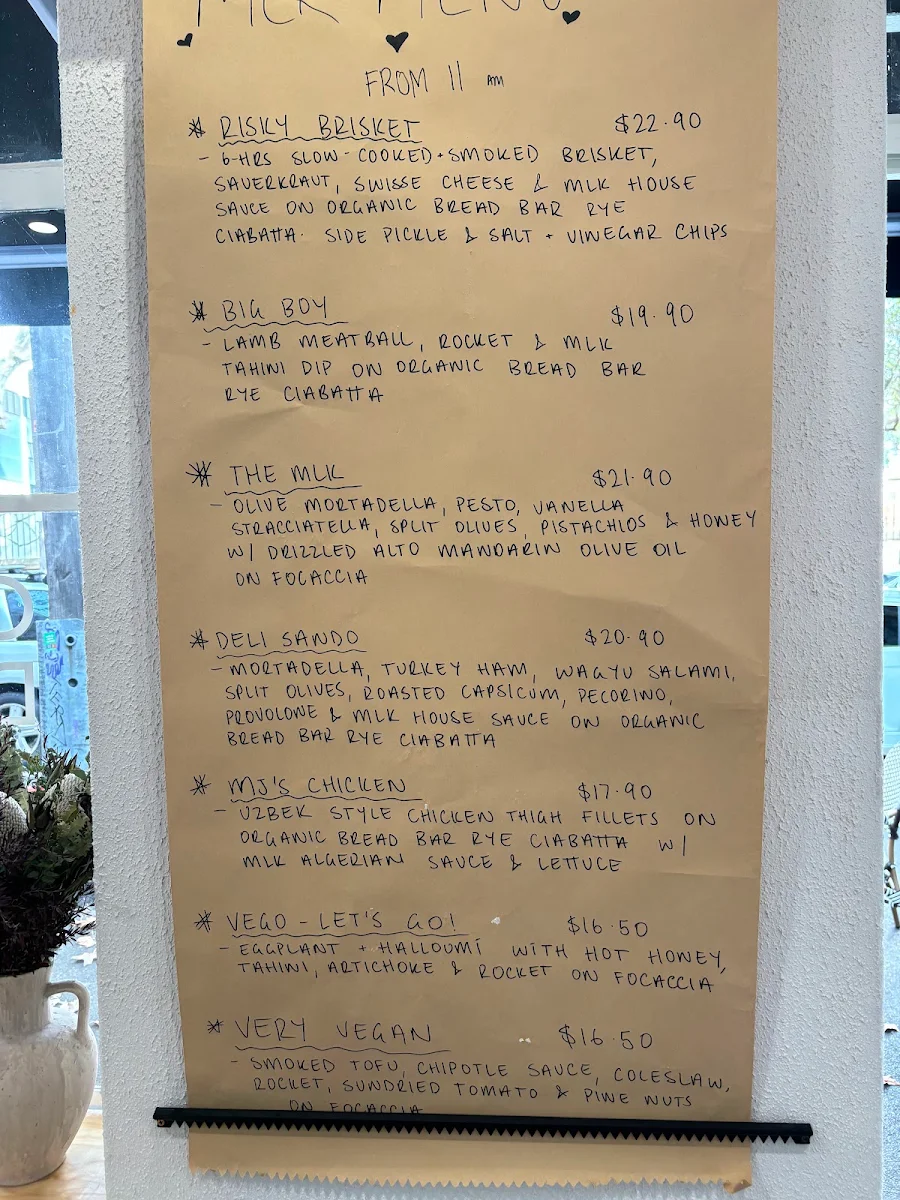 MLK MENU
FROM 11 AM
* RISKY BRISKET $22.90
- 6-HRS SLOW-COOKED + SMOKED BRISKET,
SAUERKRAUT, SWISSE CHEESE & MLK HOUSE
SAUCE ON ORGANIC BREAD BAR RYE
CIABATTA. SIDE PICKLE & SALT + VINEGAR CHIPS
* BIG BOY $19.90
- LAMB MEATBALL, ROCKET & MLK
TAHINI DIP ON ORGANIC BREAD BAR
RYE CIABATTA
* THE MLK $21.90
- OLIVE MORTADELLA, PESTO, VANELLA
STRACCIATELLA, SPLIT OLIVES, PISTACHIOS & HONEY
W/ DRIZZLED ALTO MANDARIN OLIVE OIL
ON FOCACCIA
* DELI SANDO $20.90
- MORTADELLA, TURKEY HAM, WAGYU SALAMI,
SPLIT OLIVES, ROASTED CAPSICUM, PECORINO,
PROVOLONE & MLK HOUSE SAUCE ON ORGANIC
BREAD BAR RYE CIABATTA
* MJ'S CHICKEN $17.90
- UZBEK STYLE CHICKEN THIGH FILLETS ON
ORGANIC BREAD BAR RYE CIABATTA W/
MLK ALGERIAN SAUCE & LETTUCE
* VEGO - LET'S GO! $16.50
- EGGPLANT + HALLOUMI WITH HOT HONEY,
TAHINI, ARTICHOKE & ROCKET ON FOCACCIA
* VERY VEGAN $16.50
- SMOKED TOFU, CHIPOTLE SAUCE, COLESLAW,
ROCKET, SUNDRIED TOMATO & PINE NUTS
ON FOCACCIA